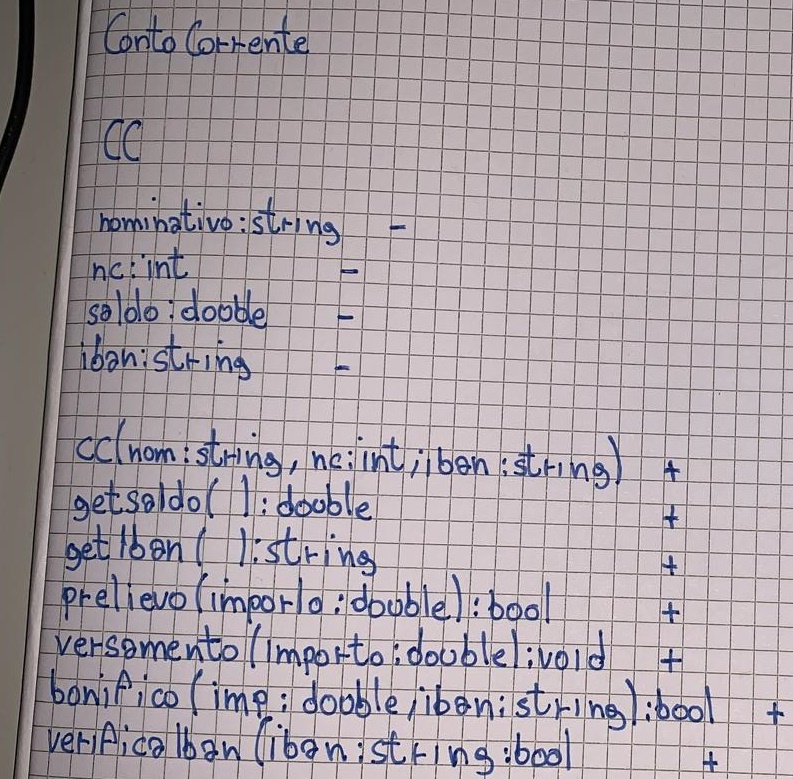 Conto Corrente
CC
nominativo:string -
nc:int -
saldo:dooble -
iban:string -
CC(nom:string, nc:int;iban:string) +
getsaldo( ):double +
getIban( ):string +
prelievo(importo:double):bool +
versamento(importo:double):void +
bonifico(imp:dooble,iban:string):bool +
verificaIban(iban:string:bool +